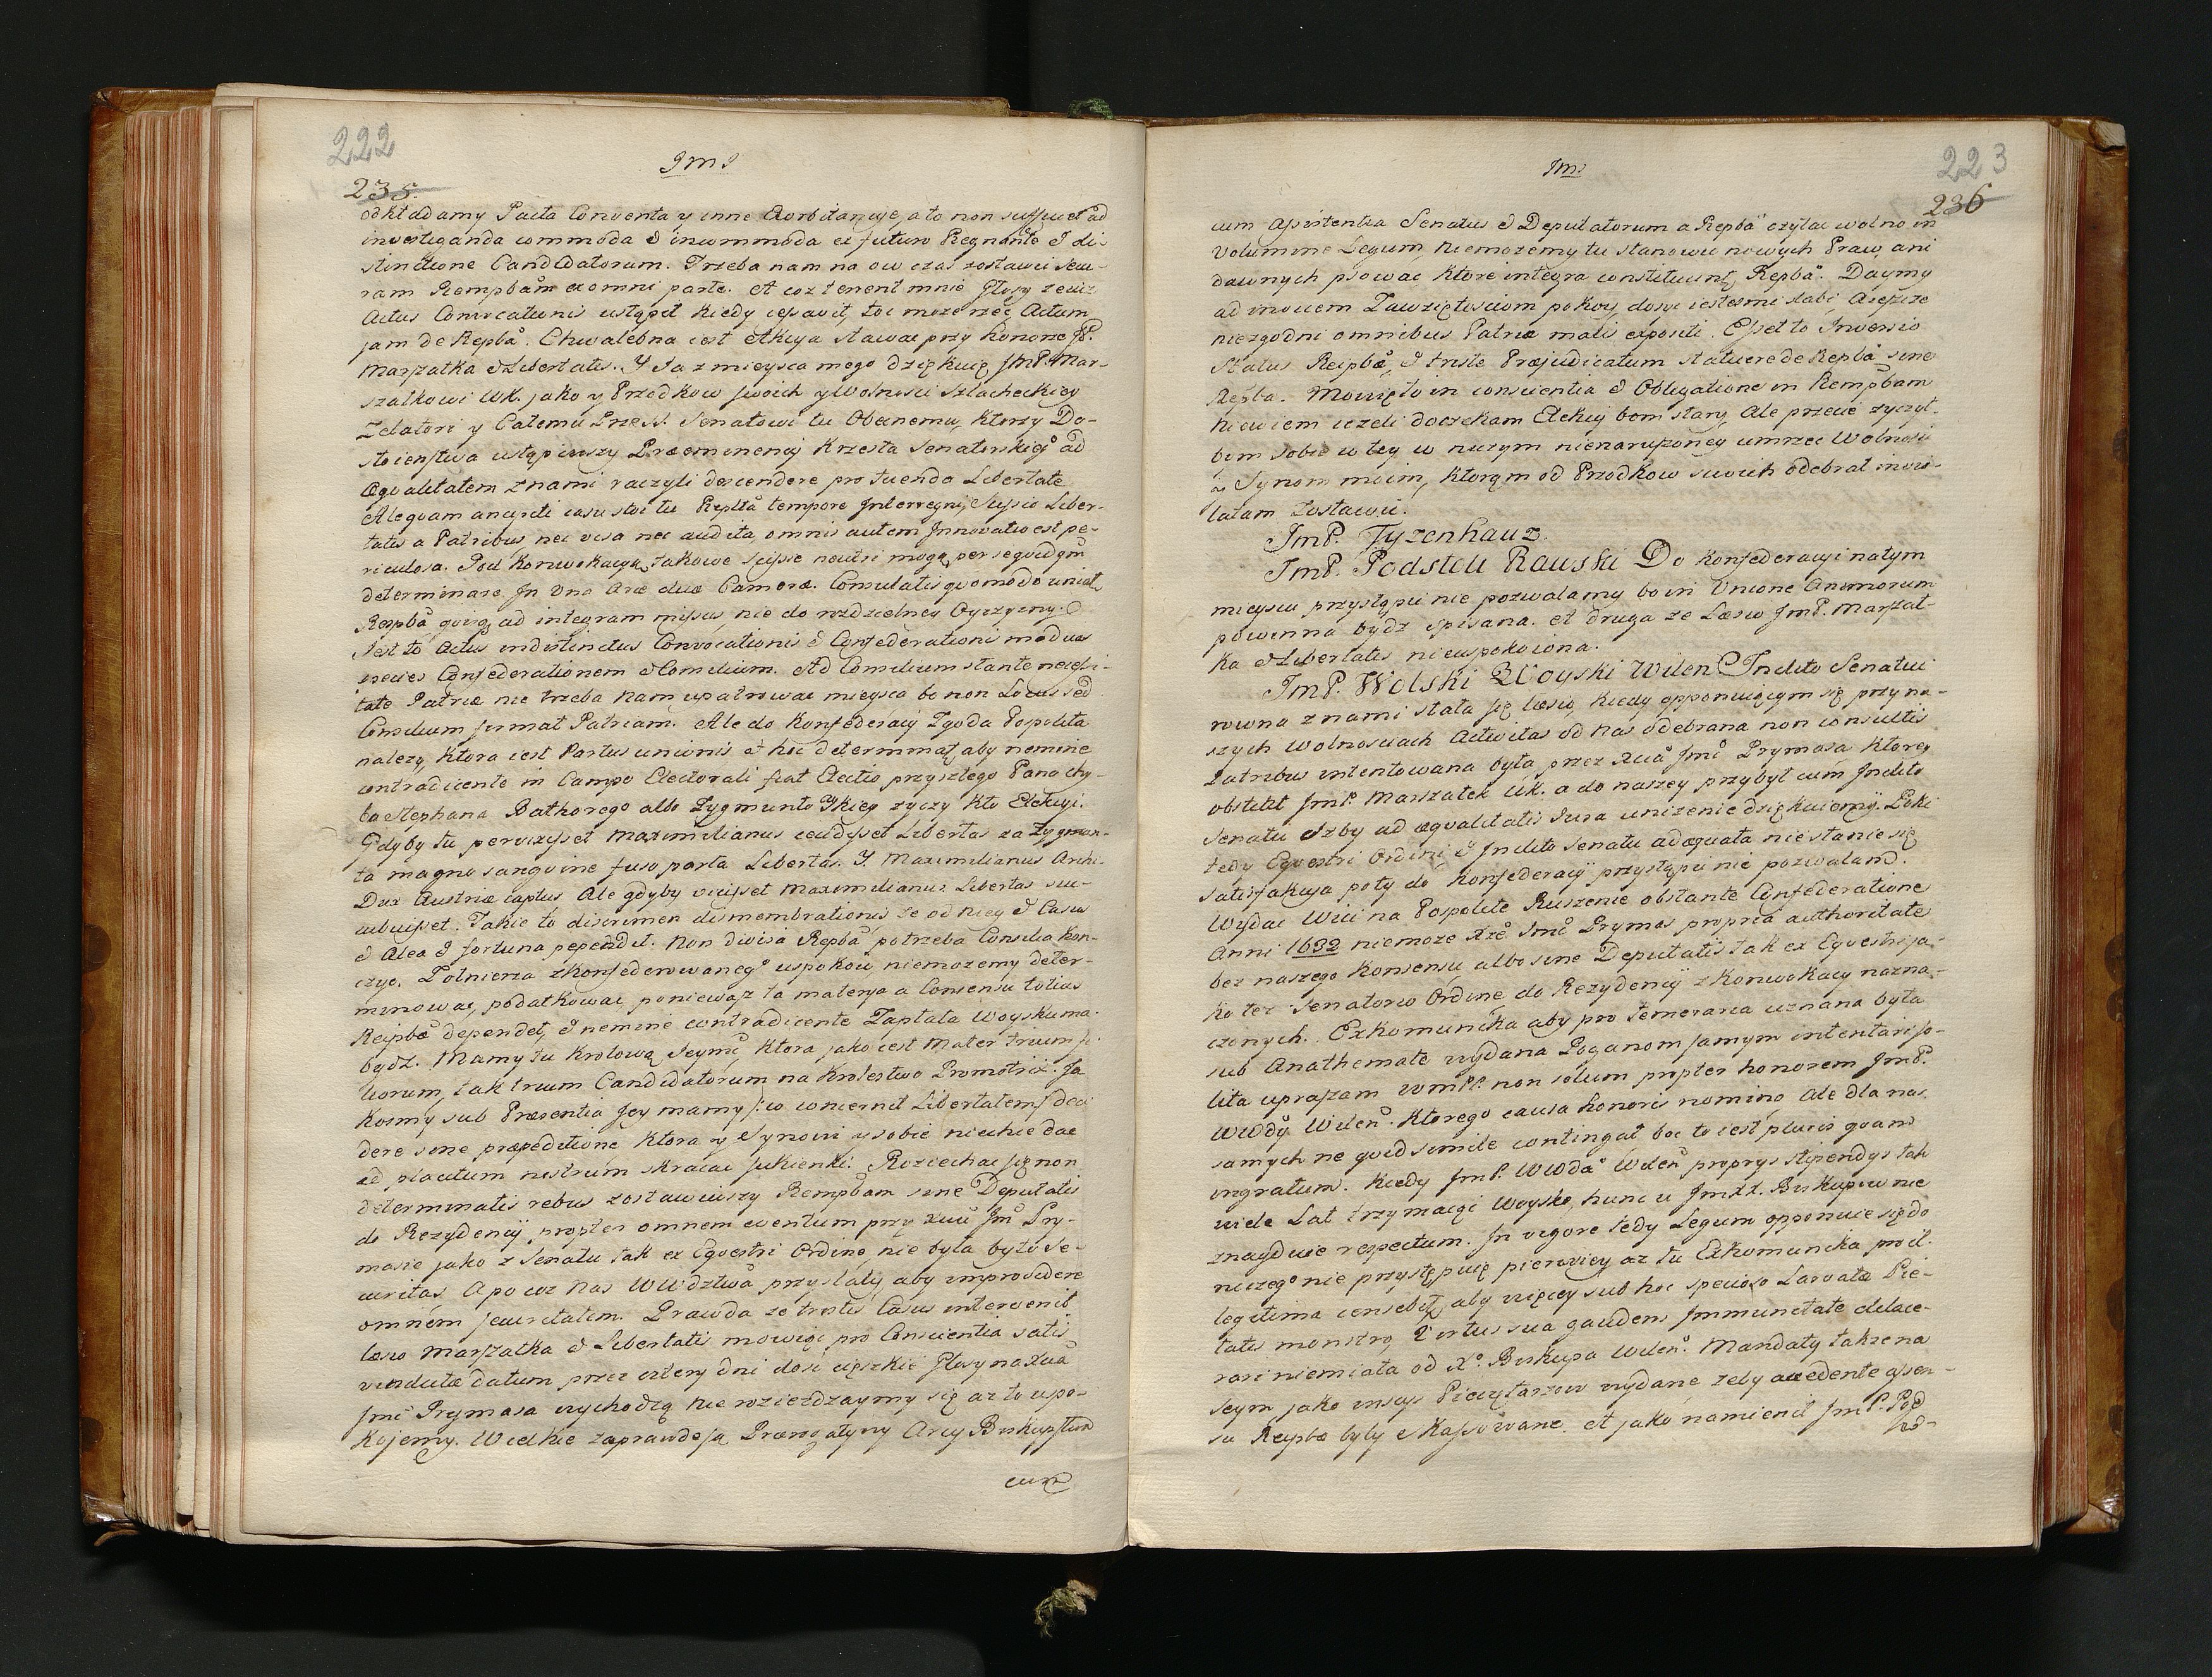 222
Jmi
235.
odkładamy Pacta Conventa y inne Exorbitancye, a to non sufficiet ad
investiganda commoda & incommoda ex futuro Regnante & di-
stinctione Candidatorum. Trzeba nam na ow czas zostawić secu-
ram Rempbam ex omni parte. A coz terrent mnie Głosy ze iuz
Actus Convocationis ustąpił kiedy cessavit, toć może rzec Actum
jam de Repba. Chwalebna iest Akcya stawac przy honorze JP.
Marszałka & Libertatis. Y Ja z mieysca mego dziękuię JmP. Mar-
szałkowi WK. jako y Przodkow swoich y Wolnosci Szlacheckiey
Zelatori y Całemu Przess. Senatowi tu Obecnemu, ktorzy Do-
stoienstwa ustąpiwszy Præeminencyi Krzesła Senatorskiego ad
æqvalitatem z nami raczyli descendere pro tuenda Libertate
Ale qvam ancipiti casu stoi tu Replta tempore Interregni, Scissio Liber-
tatis a Patribus nec visa nec audita, omnis autem Innovatio est pe-
riculosa. Pod Konwokacyą takowe Scissie neutri mogą per se qvidqm
determinare. In Una Aræ duæ Camoræ. Consulatis qvomodo uniat
Respba qvisq ad integram missus nie do rozdzielney Oyczyzny.
Jest to Actus indistinctus Convocationis & Confederationis in duas
species Confederationem & Comitium. Ad Comitium stante necessi-
tate Patriæ nie trzeba nam upatrować mieysca bo non Locus sed
Consilium firmat Patriam. Ale do Konfederacyi Zgoda Pospolita
nalezy, ktora iest Partus unionis et hoc determinat, aby nemine
contradicente in Campo Electorali fiat Electio przyszłego Pana chy-
ba Stephana Bathorego albo Zygmunta IIIciego zyczy kto Elekcyi.
Gdyby tu pervixisset Maximilianus cecidisset Libertas za Zygmun-
ta magno sangvine fuso parta Libertas. Y Maximilianus Archi-
Dux Austriæ captus Ale gdyby vicisset Maximilianus Libertas suc-
cubuisset. Takie to discrimen dismembrationis, ze od niey & Casus
& Alea & fortuna pependit. Non divisa Repba, potrzeba Consilia kon-
czyc. Zołnierza skonfederowanego uspokoić niemozemy deter-
minować, podatkować, ponieważ ta materya a Consensu totius
Reipbæ dependet, & nemine contradicente Zapłata Woysku ma
bydz. Mamy tu Krolową Jeymć, ktora jako iest Mater trium fi-
liorum, tak trium Candidatorum na Krolestwo Promotrix. Ja
kosmy sub Præsentia Jey mamy /: co concernit Libertatem / deci
dere sine præpeditione ktora y Synowi y sobie niechce dac
ad placitum nostrum skracac sukienki: Roziechac się non
determinatis rebus zostawiwszy Rempbam sine Deputatis
do Rezydencyi propter omnem eventum przy Xciu Jmci Pry-
masie jako z Senatu tak ex Eqvestri Ordine, nie była by to Se-
curitas. A po coz nas Wwdztwa przysłały aby improvidere
omnem securitatem. Prawda ze tristis Casus intervenit
læsio Marszałka & Libertatis mowiąc pro Conscientia satis
vindictæ datum przez cztery dni dosć cięszkie Głosy na Xcia
Jmci Prymasa wychodzą nie rozieżdzaymy się az to uspo-
kojemy. Wielkie zaprawde są Prærogatywy Arcy Biskupstwa
cum
223
Jmi
236
cum Assistentia Senatus & Deputatorum a Repba czytac wolno in
Volumine Legum, niemożemy tu stanowić nowych Praw, ani
dawnych psowac, ktore integra constituunt Repba. Daymy
ad invicem Zawziętosciom pokoy, dosyc iestesmi słabi, a ieszcze
niezgodni omnibus Patriæ malis expositi. Esset to Inversio
Status Reipbæ, & triste Præjudicatum statuere de Repba sine
Repba. Mowię to in conscientia & Obligatione in Rempbam
niewiem iezeli doczekam Elekcyi bom stary, Ale przecie zyczył-
bym sobie w tey w niczym nienaruszoney umrzec Wolnosci
y Synom moim, ktorąm od Przodkow swoich odebrał invio-
latam zostawić.
JmP. Tyzenhauz.
JmP. Podstoli Rawski Do konfederacyi na tym
mieyscu przystąpić nie pozwalamy bo in Unione Animorum
powinna bydz spisana. et druga ze Læsio JmP. Marszał-
ka & Libertatis nieuspokoiona.
JmP. Wolski Woyski Wilen Inclito Senatui
rowna z nami stała się læsio, kiedy opponuiącym się przy na-
szych Wolnosciach Activitas od nas odebrana non consultis
Patribus intentowana była przez Xcia Jmci Prymasa ktorey
obstitit JmP. Marszałek WK. a do naszey przybył cum Inclito
Senatu Izby ad æqvalitatis Jura uniżenie dziękuiemy. Poki
tedy Eqvestri Ordini & Inclito Senatu adæquata nie stanie się
satisfakcya poty do konfederacyi przystąpić nie pozwalam.
Wydac Wici na Pospolite Ruszenie obstante Confederatione
Anni 1632 niemoże Xże Jmć Prymas propria authoritate
bez naszego Konsensu, albo sine Deputatis tak ex Eqvestri ja-
ko tez Senatorio Ordine do Rezydencyi z Konwokacyi nazna-
czonych. Exkomunika aby pro temeraria uznana była
sub Anathemate wydana Poganom samym intentari so-
lita upraszam WmPP. non solum propter honorem JmP.
Wwdy Wilen. ktorego causa honoris nomino, Ale dla nas
samych ne qvid simile contingat boc to iest pluris qvam
ingratum. kiedy JmP. Wwda Wilen propriis stipendys tak
wiele Lat trzymaiąc Woysko, hunc u JmXX. Biskupow nie
znayduie respectum. In vigore tedy Legum opponuie się do
niczego nie przystępuię pierwiey az tu Exkomunika pro il-
legitima censebit, aby więcey sub hoc specioso Larvatæ Pie-
tatis monstro, Virtus sua gaudens Immunitate dilace-
rari niemiała od X. Biskupa Wilen. Mandaty takze na
Seym jako inszych Pieczętarzow wydane, żeby accedente assen-
su Reipbæ były skassowane. et jako namienił JmP. Pod-